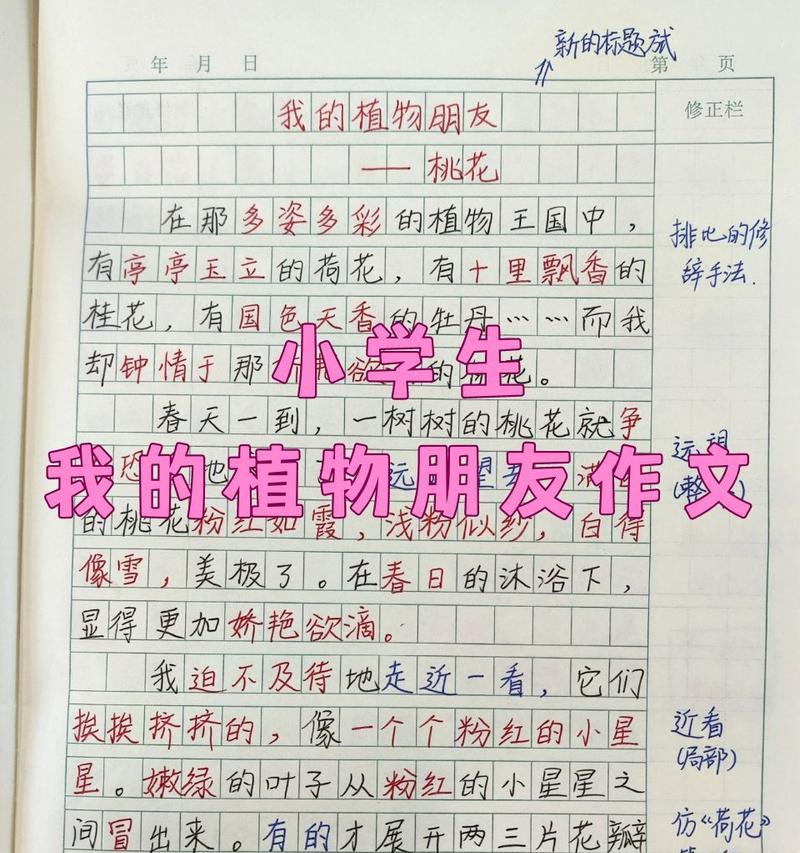 新的标题试
年 月 日 第 页
我的植物朋友
修正栏
—— 桃花
在那多姿多彩的植物王国中，
有亭亭玉立的荷花，有十里飘香的
排比的修
辞手法.
桂花，有国色天香的牡丹……而我
却钟情于那 欲 的 花。
小学生
春天一到，一树树的桃花就争
恐 地 远 望去 满
远望
(整
我的植物朋友作文
的桃花粉红如霞，浅粉似纱，白得
像雪，美极了。在春日的沐浴下，
显得更加娇艳欲滴。
我迫不及待地走近一看，它们
挨挨挤挤的，像一个个粉红的小星
近看
(局部)
星。嫩绿的叶子从粉红的小星星之
间冒出来。有的才展开两三片花瓣
仿《荷花》